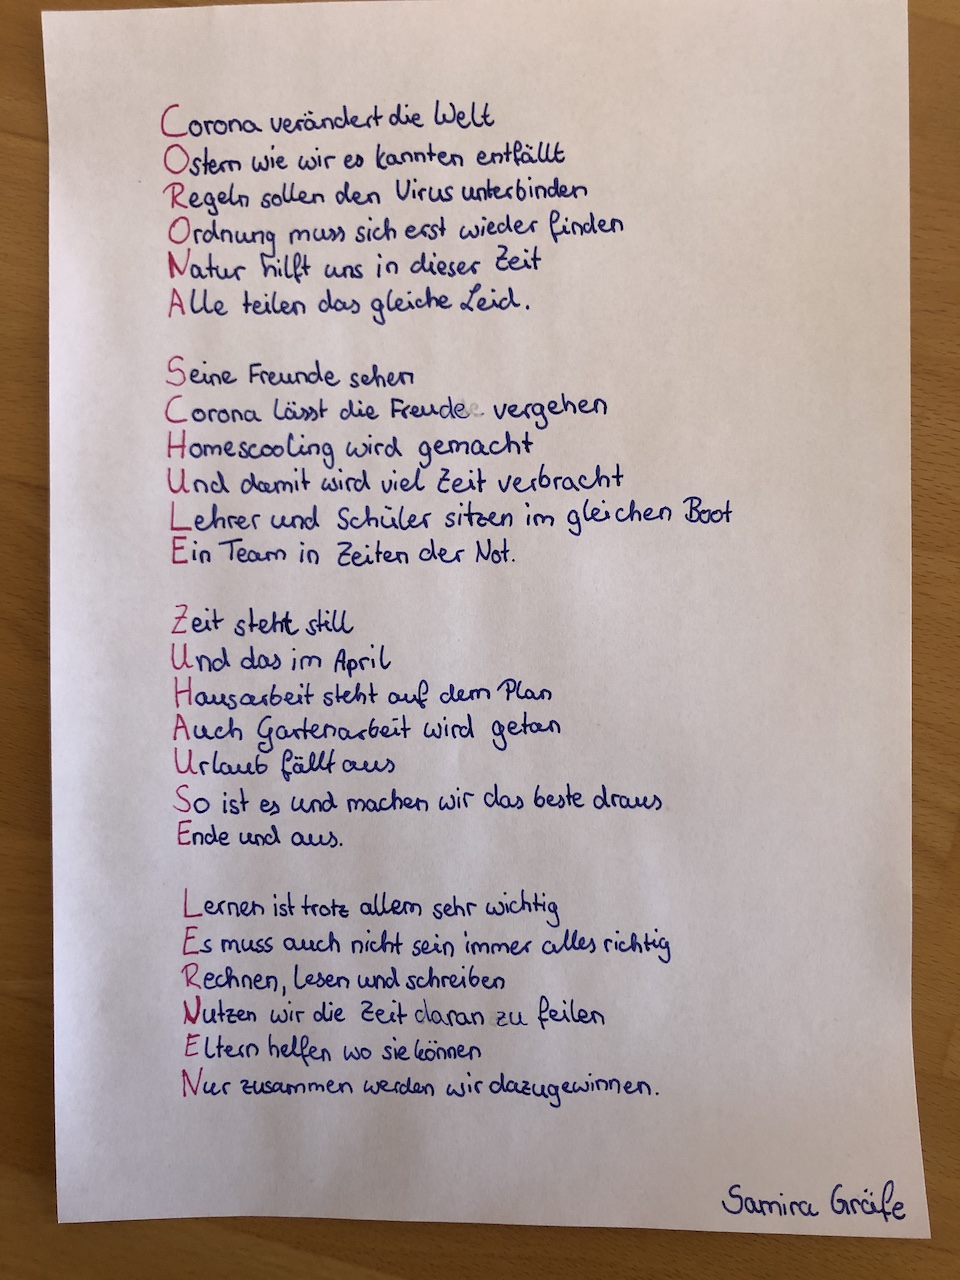 Corona verändert die Welt
Ostern wie wir es kannten entfällt
Regeln sollen den Virus unterbinden
Ordnung muss sich erst wieder finden
Natur hilft uns in dieser Zeit
Alle teilen das gleiche Leid.
Seine Freunde sehen
Corona lässt die Freude vergehen
Homescooling wird gemacht
Und damit wird viel Zeit verbracht
Lehrer und Schüler sitzen im gleichen Boot
Ein Team in Zeiten der Not.
Zeit steht still
Und das im April
Hausarbeit steht auf dem Plan
Auch Gartenarbeit wird getan
Urlaub fällt aus
So ist es und machen wir das beste draus
Ende und aus.
Lernen ist trotz allem sehr wichtig
Es muss auch nicht sein immer alles richtig
Rechnen, lesen und schreiben
Nutzen wir die Zeit daran zu feilen
Eltern helfen wo sie können
Nur zusammen werden wir dazugewinnen.
Samira Gräfe